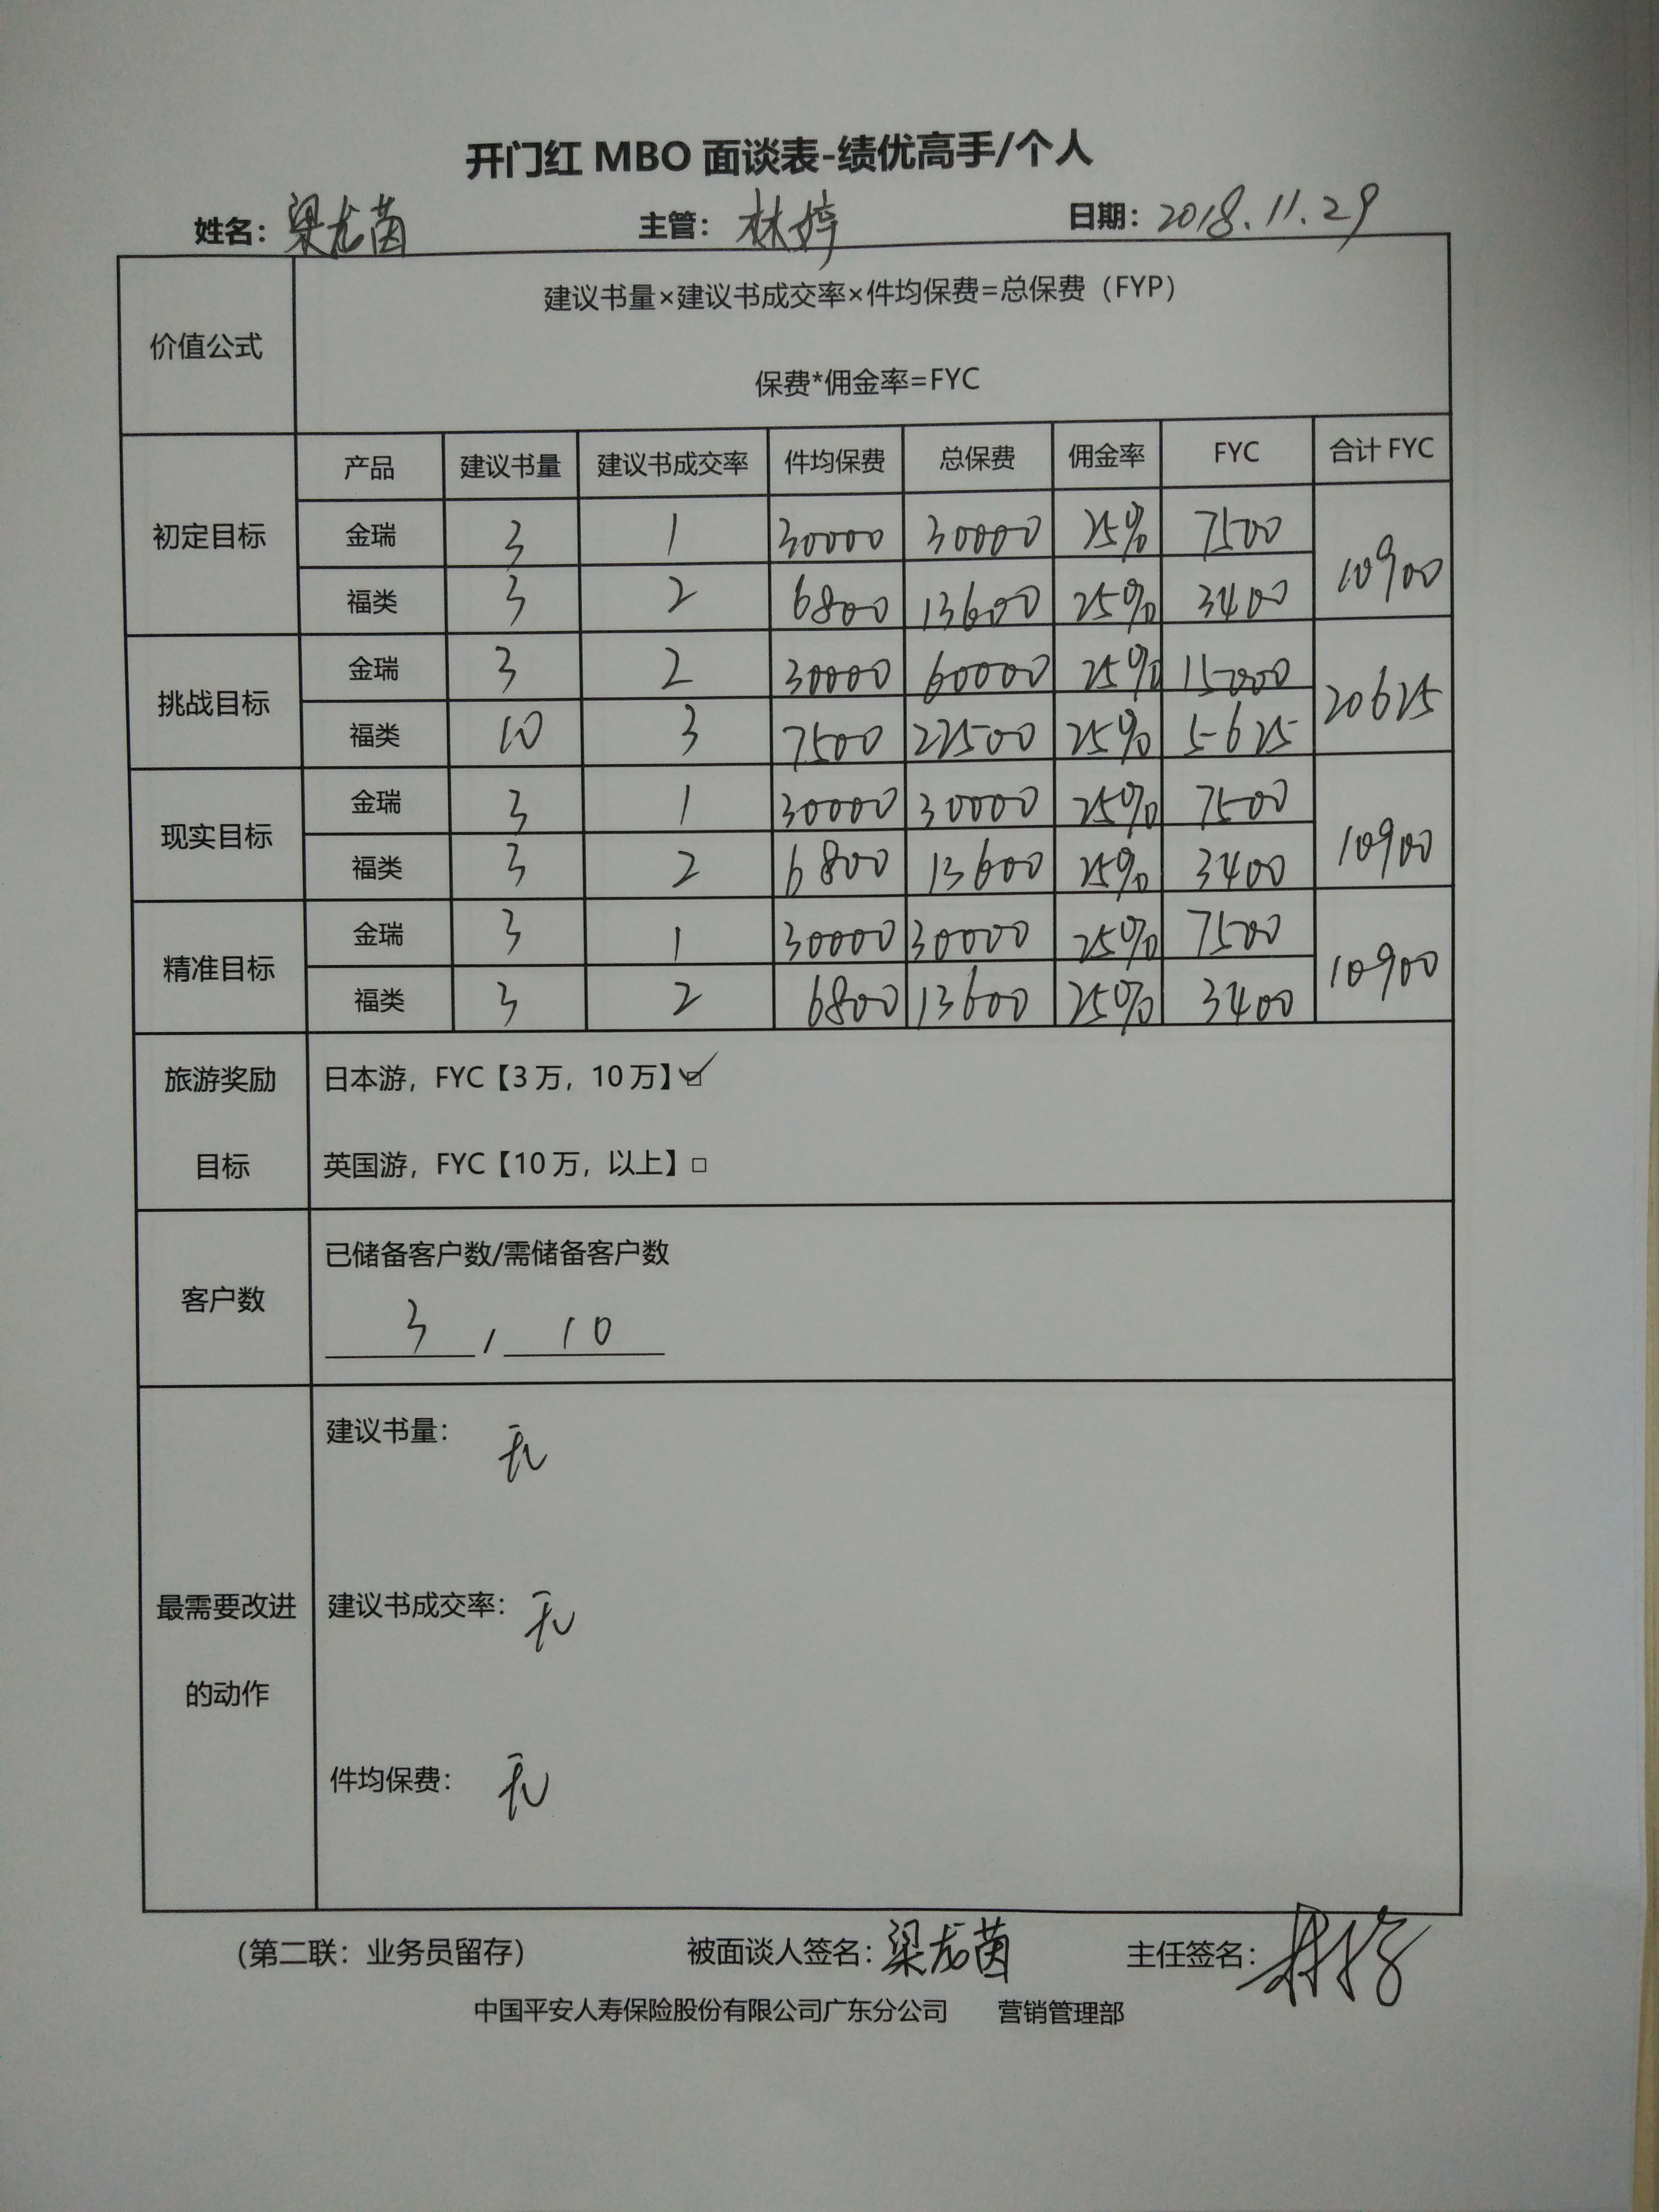 开门红 MBO 面谈表-绩优高手/个人
姓名：梁龙茵 主管：林婷 日期：2018.11.29
价值公式
建议书量×建议书成交率×件均保费=总保费（FYP）
保费*佣金率=FYC
产品 建议书量 建议书成交率 件均保费 总保费 佣金率 FYC 合计 FYC
初定目标
金瑞 3 1 30000 30000 25% 7500
福类 3 2 6800 13600 25% 3400
10900
挑战目标
金瑞 3 2 30000 60000 25% 15000
福类 10 3 7500 22500 25% 5625
20625
现实目标
金瑞 3 1 30000 30000 25% 7500
福类 3 2 6800 13600 25% 3400
10900
精准目标
金瑞 3 1 30000 30000 25% 7500
福类 3 2 6800 13600 25% 3400
10900
旅游奖励
目标
日本游，FYC【3 万，10 万】☑
英国游，FYC【10 万，以上】□
客户数
已储备客户数/需储备客户数
3 / 10
最需要改进
的动作
建议书量： 无
建议书成交率： 无
件均保费： 无
（第二联：业务员留存） 被面谈人签名：梁龙茵 主任签名：林婷
中国平安人寿保险股份有限公司广东分公司 营销管理部